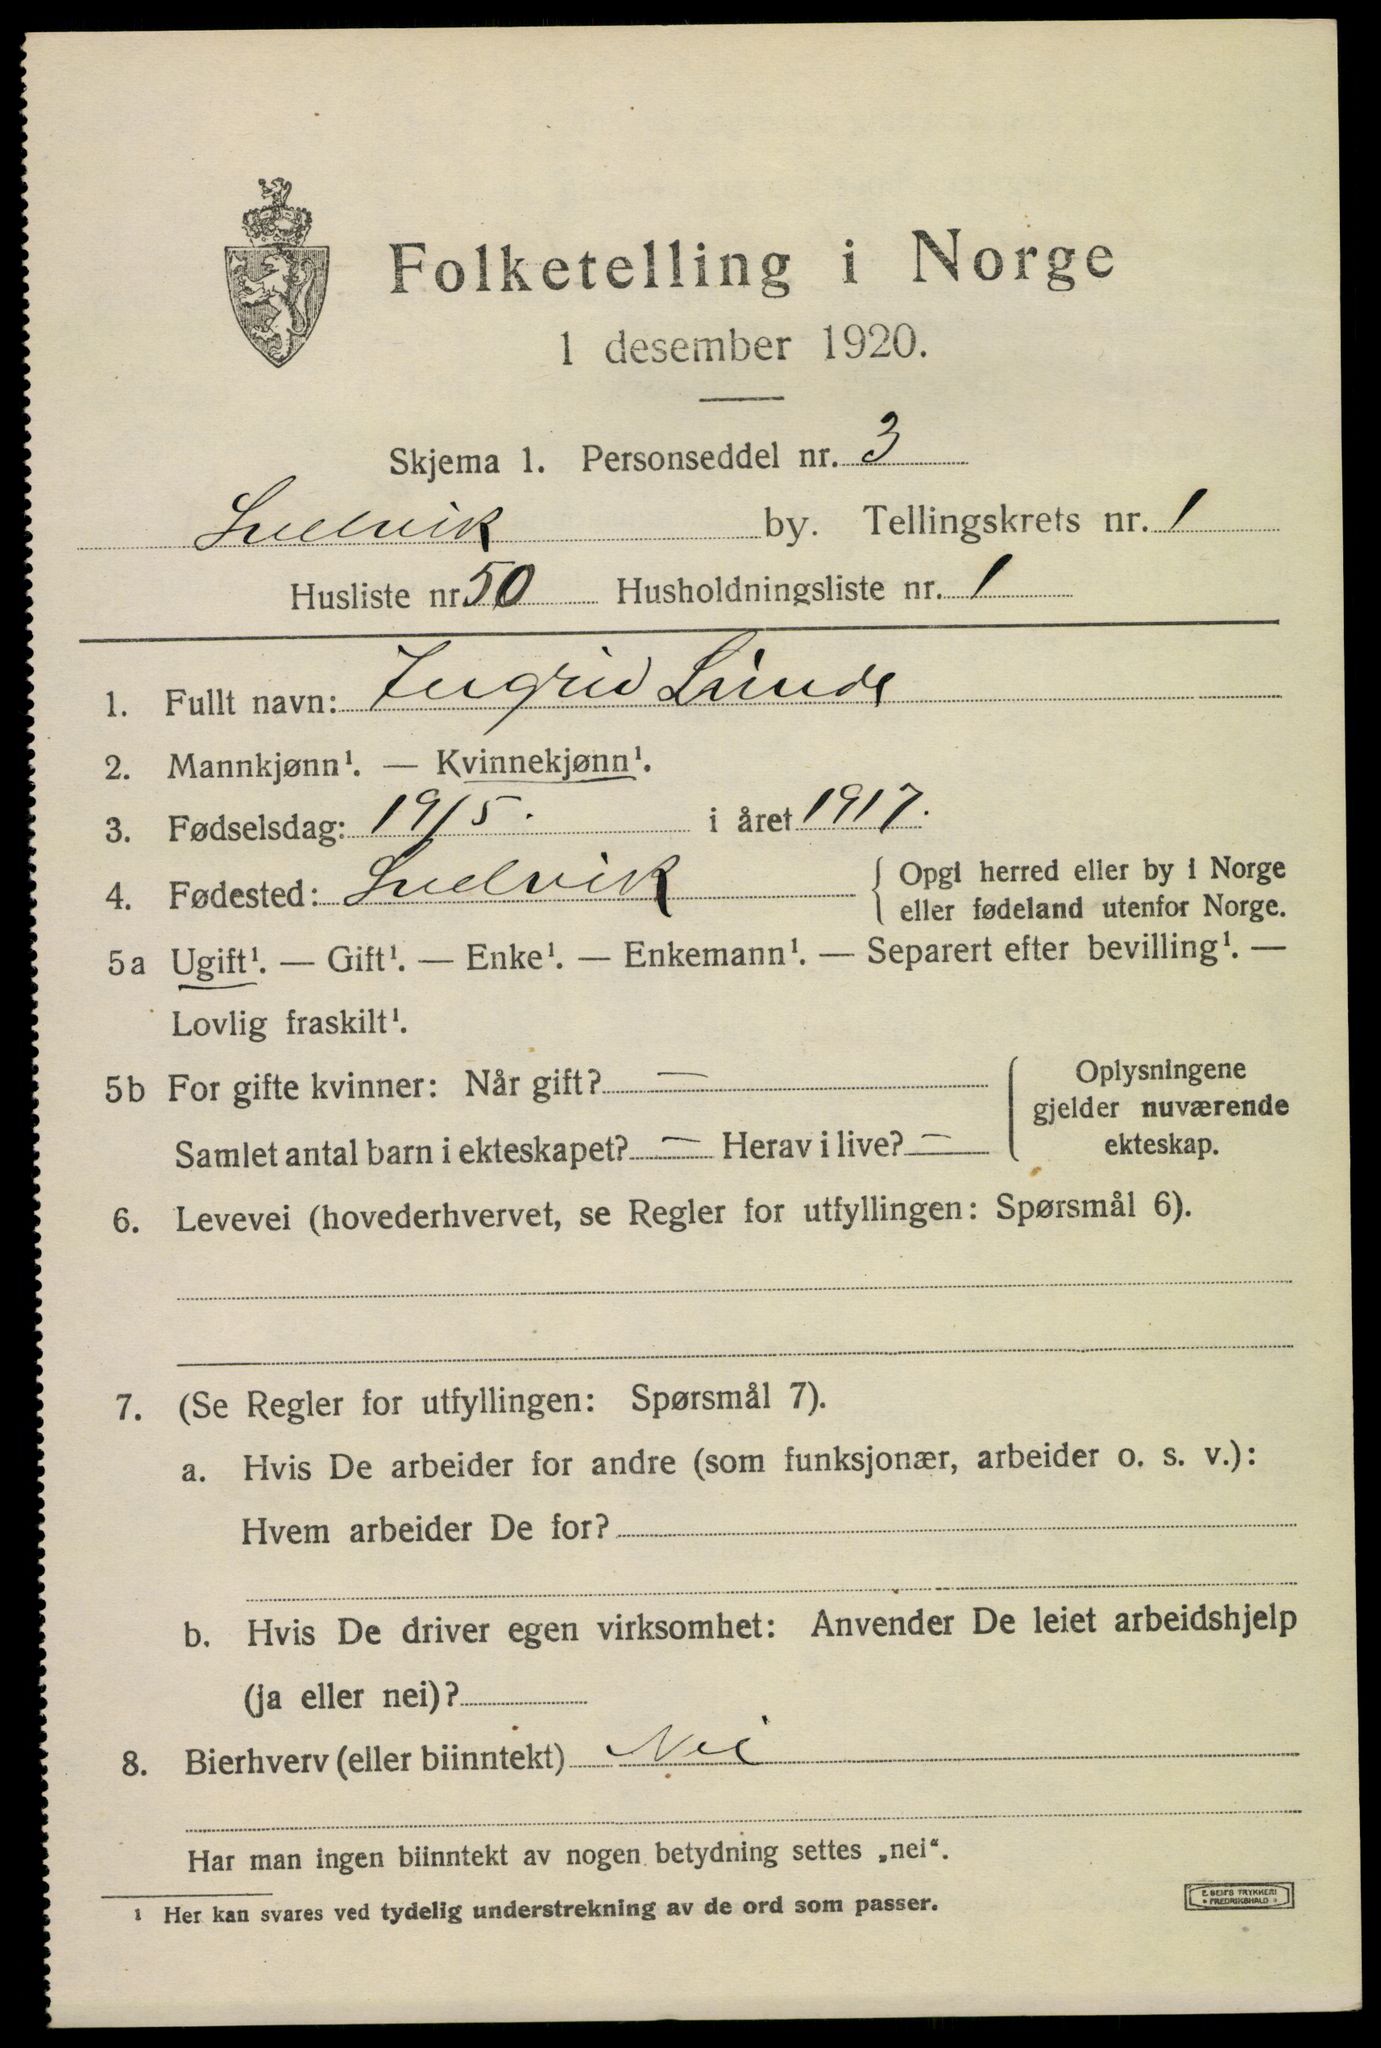 Folketelling i Norge
1 desember 1920.
Skjema 1. Personseddel nr. 3
Svelvik by. Tellingskrets nr. 1
Husliste nr 50 Husholdningsliste nr. 1
1. Fullt navn: Ingrid Lunde
2. Mannkjønn¹. — Kvinnekjønn¹.
3. Fødselsdag: 19/5. i året 1917.
4. Fødested: Svelvik { Opgi herred eller by i Norge
eller fødeland utenfor Norge.
5a Ugift¹. — Gift¹. — Enke¹. — Enkemann¹. — Separert efter bevilling¹. —
Lovlig fraskilt¹.
5b For gifte kvinner: Når gift? — Oplysningene
gjelder nuværende
Samlet antal barn i ekteskapet? — Herav i live? — ekteskap.
6. Levevei (hovederhvervet, se Regler for utfyllingen: Spørsmål 6).
7. (Se Regler for utfyllingen: Spørsmål 7).
a. Hvis De arbeider for andre (som funksjonær, arbeider o. s. v.):
Hvem arbeider De for?
b. Hvis De driver egen virksomhet: Anvender De leiet arbeidshjelp
(ja eller nei)?
8. Bierhverv (eller biinntekt) Nei
Har man ingen biinntekt av nogen betydning settes „nei“.
¹ Her kan svares ved tydelig understrekning av de ord som passer.
E. SEM'S TRYKKERI
• FREDRIKSHALD •